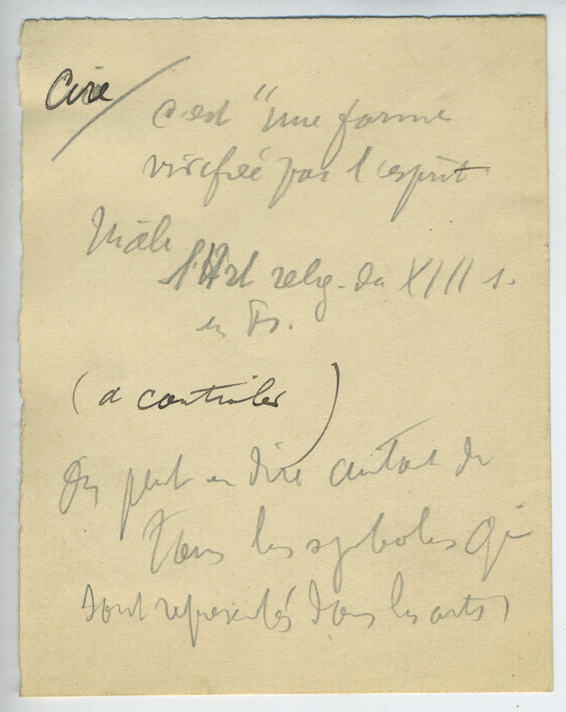 Cire
c'est "une forme
vivifiée par l'esprit
Mâle
l'Art relig. du XIII s.
en Fr.
(a controler)
On peut en dire autant de
tous les symboles qui
sont representés dans les arts